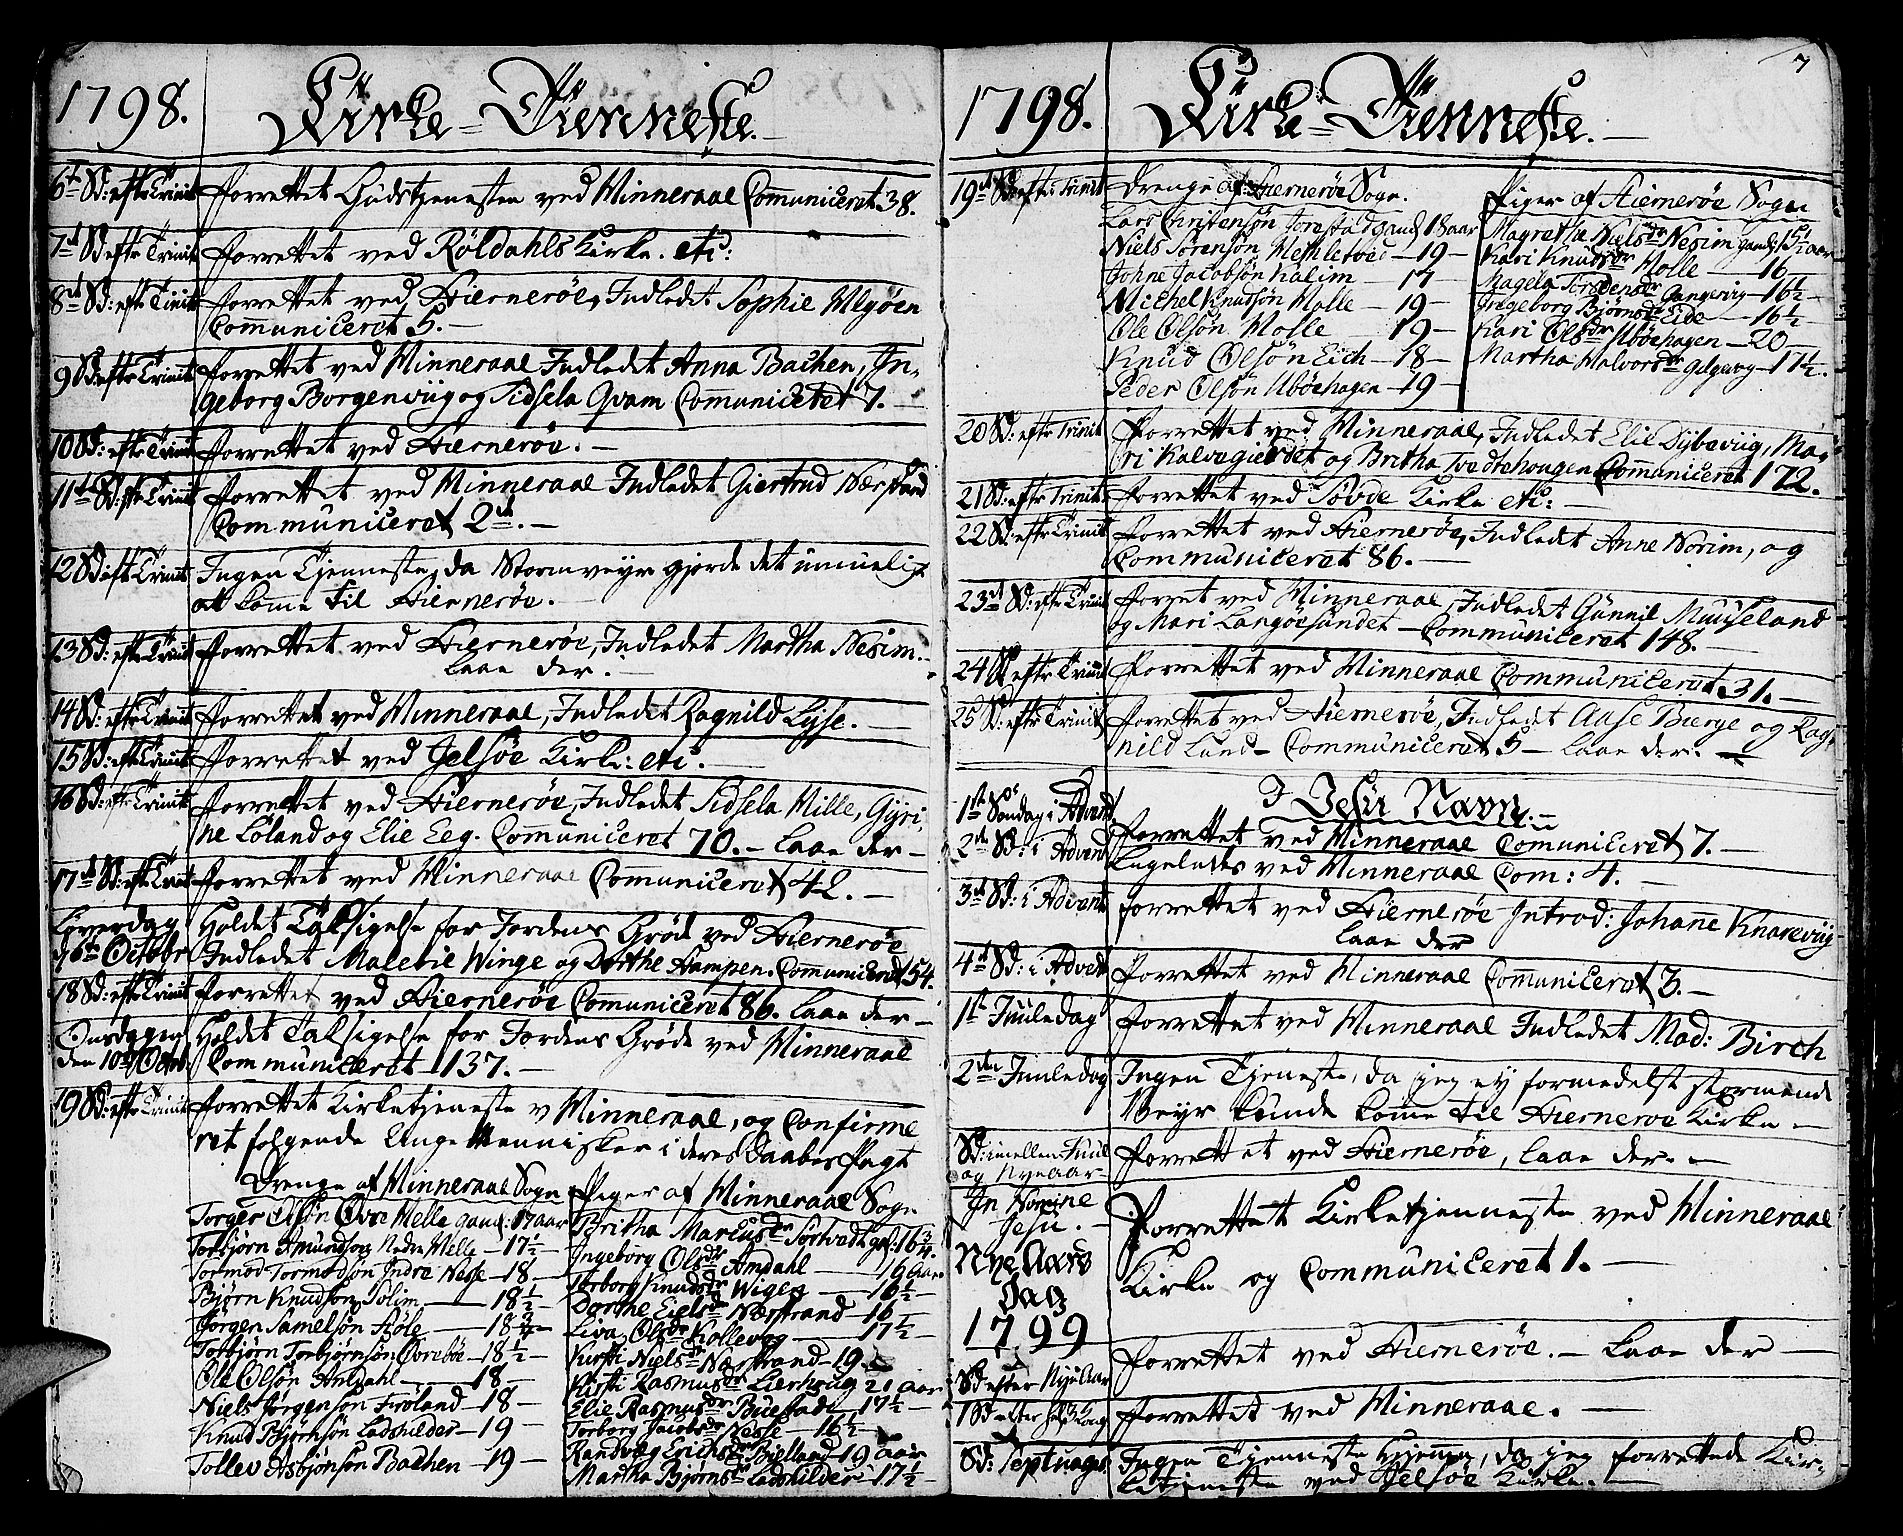 1798.
Kirke-Tienneste.
6te Sd: efter Trinit
forrettet Gudstjenesten ved Hinneraae Communiceret 38.
7d Sd efter Trinit
forrettet ved Röldahls Kirke. etc:
8d Sd: efter Trinit
forrettet ved Hiernerøe, Indledet Sophie Melgöen
Communiceret 5.—
9 Sd: efter Trinit
forrettet ved Hinneraae Indledet Anna Bachen, In-
geborg Borgenviig og Sidsela Qvam Communiceret 7.—
10 Sd: efter Trinit
forrettet ved Hiernerøe.—
11te Sd: efter Trinit
forrettet ved Hinneraae Indledet Giertrud Nærstrand
Communiceret 2de.—
12 Sd efter Trinit
Ingen Tjenneste, da Stormveyr gjorde det umuelig
at komme til Hiernerøe.—
13 Sd: efter Trinit
forrettet ved Hiernerøe, Indledet Martha Nesim.—
laae der.—
14 Sd: efter Trinit
forrettet ved Hinneraae, Indledet Ragnild Lyse.—
15 Sd: efter Trinit
forrettet ved Jelsöe Kirke: etc.—
16 Sd: efter Trinit
forrettet ved Hiernerøe, Indledet Sidsela Mille, Gyri,
ne Löland og Elie Eeg. Communiceret 70.— laae der—
17de Sd: efter Trinit
forrettet ved Hinneraae Communiceret 42.—
Löverdag
d 6te Octobr
Holdet Taksigelse for Jordens Gröde ved Hiernerøe
Indledet Malene Winge og Dorthe Hampen. Communiceret 54.
18 Sd: efter Trinit
forrettet ved Hiernerøe Communiceret 86. laae der—
Onsdagen
den 10de Octbr:
Holdet Taksigelse for Jordens Gröde ved Hinneraae
Communiceret 137.—
19 Sd: efter Trinit
forrettet Kirketjeneste v Hinneraae, og Confirme
ret følgende Unge Mennisker i deres Daabes Pagt
Drenge af Hinneraae Sogn
Torger Olsön Övre Helle gaml: 17 aar
Torbjörn Amundson Nedre Helle—17½—
Tormod Tormodsön Indre Nesse—18—
Björn Knudson Solim—18½—
Jörgen Samelsön Höle—18¾—
Torbjörn Torbjörnsön Övreböe—18½—
Ole Olsön Amdahl—18—
Niels Jörgenson Fröland—18—
Knud Björnsön Ladshilder—19
Tollev Asbjönsön Bachen—19—
Piger af Hinneraae Sogn
Britha Marcusdr Sörtvedt gl: 16¾.
Ingeborg Olsdr Amdahl—16 aar
Torborg Knudsdr Wigen—16½—
Dorthe Eielsdr Nærstrand—16—
Liva Olsdr Kollevog—17½—
Kirsti Nielsdr Nærstrand—19—
Kirsti Rasmusdr Lierhoug 21 aar
Elie Rasmusdr Buestad—17½—
Torborg Jacobsdr Nesse—16½—
Randveg Erichsdr Bielland 19 aar
Martha Björnsdr Ladshilder—17½—
7
1798.
Kirke-Tienneste.—
19de Sd: efter Trinit
Drenge af Hiernerøe Sogn.
Lars Christensön Jorestad gaml 18 aar
Niels Sörensön Mehhlesöed—19—
Johne Jacobsön Kalim—17—
Michel Knudsön Molle—19—
Ole Olsön Mosle—19—
Knud Olsön Eich—18—
Peder Olsön Uböehagen—19—
Piger af Hiernerøe Sogn
Magrethe Nielsdr Nesim gaml: 15½ aar
Kari Knudsdr Molle—16—
Magela Torsdensdr Gangevig—16½—
Ingeborg Björnsdr Eide—16½—
Kari Olsdr Uböehagen—20—
Martha Halvorsdr Gilgevig—17½.
20 Sd: efter Trinit
forrettet ved Hinneraae, Indledet Elie Dybeviig, Ma-
ri Kalvegierdet og Britha Tvedtehougen Communiceret 172.
21 Sd: efter Trinit.
forrettet ved Sövde Kirke etc:—
22 Sd: efter Trinit
forrettet ved Hiernerøe, Indledet Anne Norim, og
Communiceret 86.—
23de Sd: efter Trinit
forret ved Hinneraae, Indledet Günnil Muuseland
og Mari Langöesundet—Communiceret 148.—
24 Sd efter Trinit
forrettet ved Hinneraae Communiceret 31.—
25 Sd: efter Trinit
forrettet ved Hiernerøe, Indledet Aase Bierge og Rag-
nild Lund—Communiceret 5—laae der.—
I Jesu Navn.—
1ste Söndag i Advent
forrettet ved Hinneraae Communiceret 7.—
2den Sd: i Advent
Ligeledes ved Hinneraae Com: 4.—
3de Sd: i Advent
forrettet ved Hiernerøe Introd: Johane Knareviig
laae der
4de Sd: i Advent
forrettet ved Hinneraae Communiceret 3.—
1ste Juuledag
forrettet ved Hinneraae Indledet Mad: Birch
2den Juuledag
Ingen Tjeneste, da jeg ey formedelst stormende
Veyr kunde komme til Hiernerøe Kirke—
Sd: imellem Juul
og Nyeaar
forrettet ved Hiernerøe, laae der.—
In Nomine
Jesu.—
Nye Aars
Dag
1799
forrettet Kirketjenneste ved Hinneraae
Kirke og Communiceret 1.—
Sd efter Nye Aar
forrettet ved Hiernerøe.—laae der—
1 Sd efter
forrettet ved Hinneraae.—
Sd: Septuages
Ingen Tjenneste hjemme, da jeg forrettede Kir-
ketjeneste ved Jelsöe Kirke.—